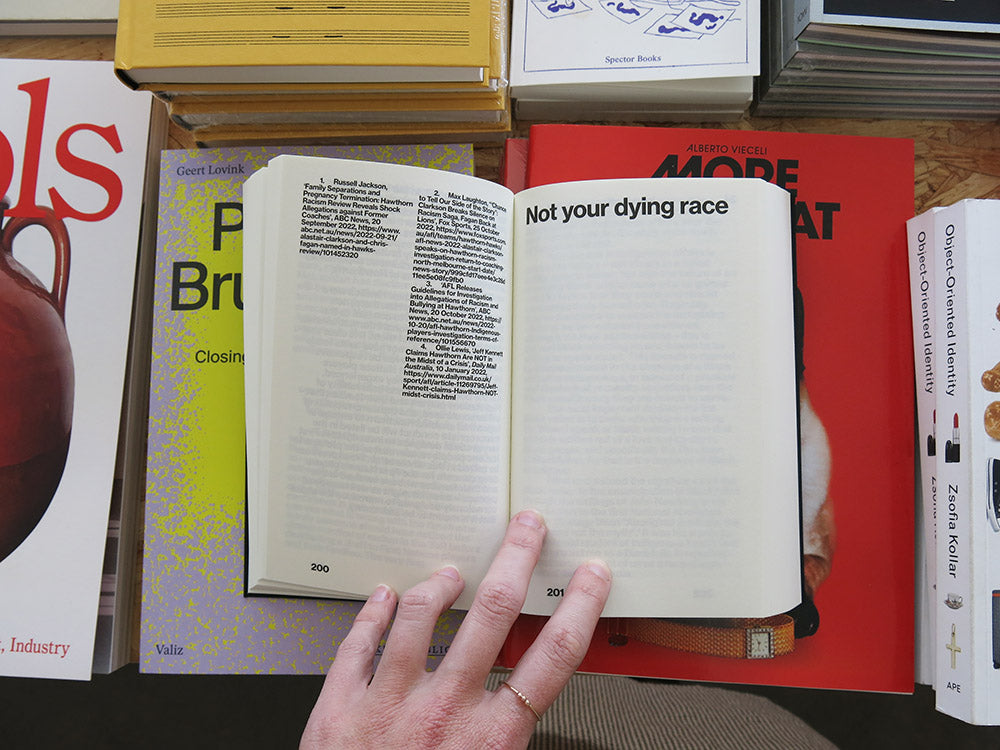 Spector Books
ols
, Industry
Geert Lovink
P
Bru
Closing
Valiz
ALBERTO VIECELI
MORE
AT
1. Russell Jackson,
‘Family Separations and
Pregnancy Termination: Hawthorn
Racism Review Reveals Shock
Allegations against Former
Coaches’, ABC News, 20
September 2022, https://www.
abc.net.au/news/2022-09-21/
alastair-clarkson-and-chris-
fagan-named-in-hawks-
review/101452320
2. Max Laughton, ‘“Chance
to Tell Our Side of the Story’:
Clarkson Breaks Silence on
Racism Saga, Fagan Back at
Lions’, Fox Sports, 25 October
2022, https://www.foxsports.com.
au/afl/teams/hawthorn-hawks/
afl-news-2022-alastair-clarkson-
speaks-on-hawthorn-racism-
investigation-return-to-coaching-
north-melbourne-start-date/
3. ‘AFL Releases
Guidelines for Investigation
into Allegations of Racism and
Bullying at Hawthorn’, ABC
News, 20 October 2022, https://
www.abc.net.au/news/2022-
10-20/afl-hawthorn-Indigenous-
players-investigation-terms-of-
reference/101556670
4. Ollie Lewis, ‘Jeff Kennett
Claims Hawthorn Are NOT in
the Midst of a Crisis’, Daily Mail
Australia, 10 January 2022,
https://www.dailymail.co.uk/
sport/afl/article-11269795/Jeff-
Kennett-claims-Hawthorn-NOT-
midst-crisis.html
200
Not your dying race
201
Object-Oriented Identity
Object-Oriented Identity
Zsofia Kollar
APE